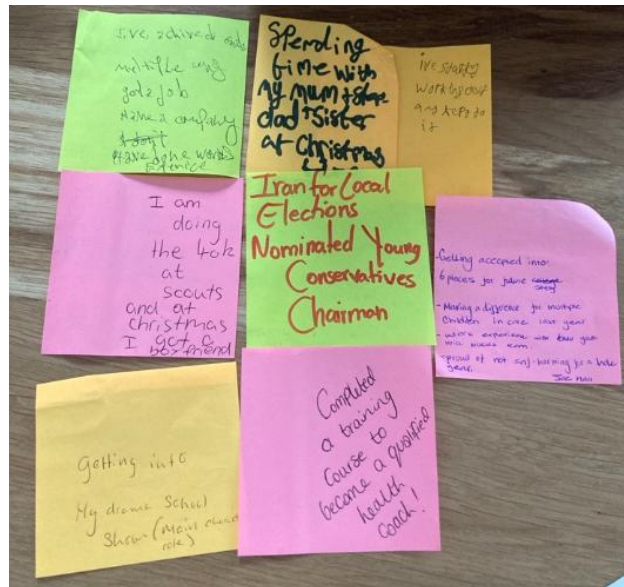 I've achived
multiple
got a job
Have a company
I don't
Have done work
Spending
time with
my mum + step
dad + sister
at Christmas
ive started
working out
and kept to
it
I am
doing
the 40k
at
scouts
and at
christmas
I got a
boyfriend
I ran for Local
Elections
Nominated Young
Conservatives
Chairman
- Getting accepted into
6 places for future
- Making a difference for multiple
Children in care last year
- work experience with
- proud of not self-harming for a whole
year.
Getting into
My drama School
Show (main
role)
Completed
a training
Course to
become a qualified
health
coach!